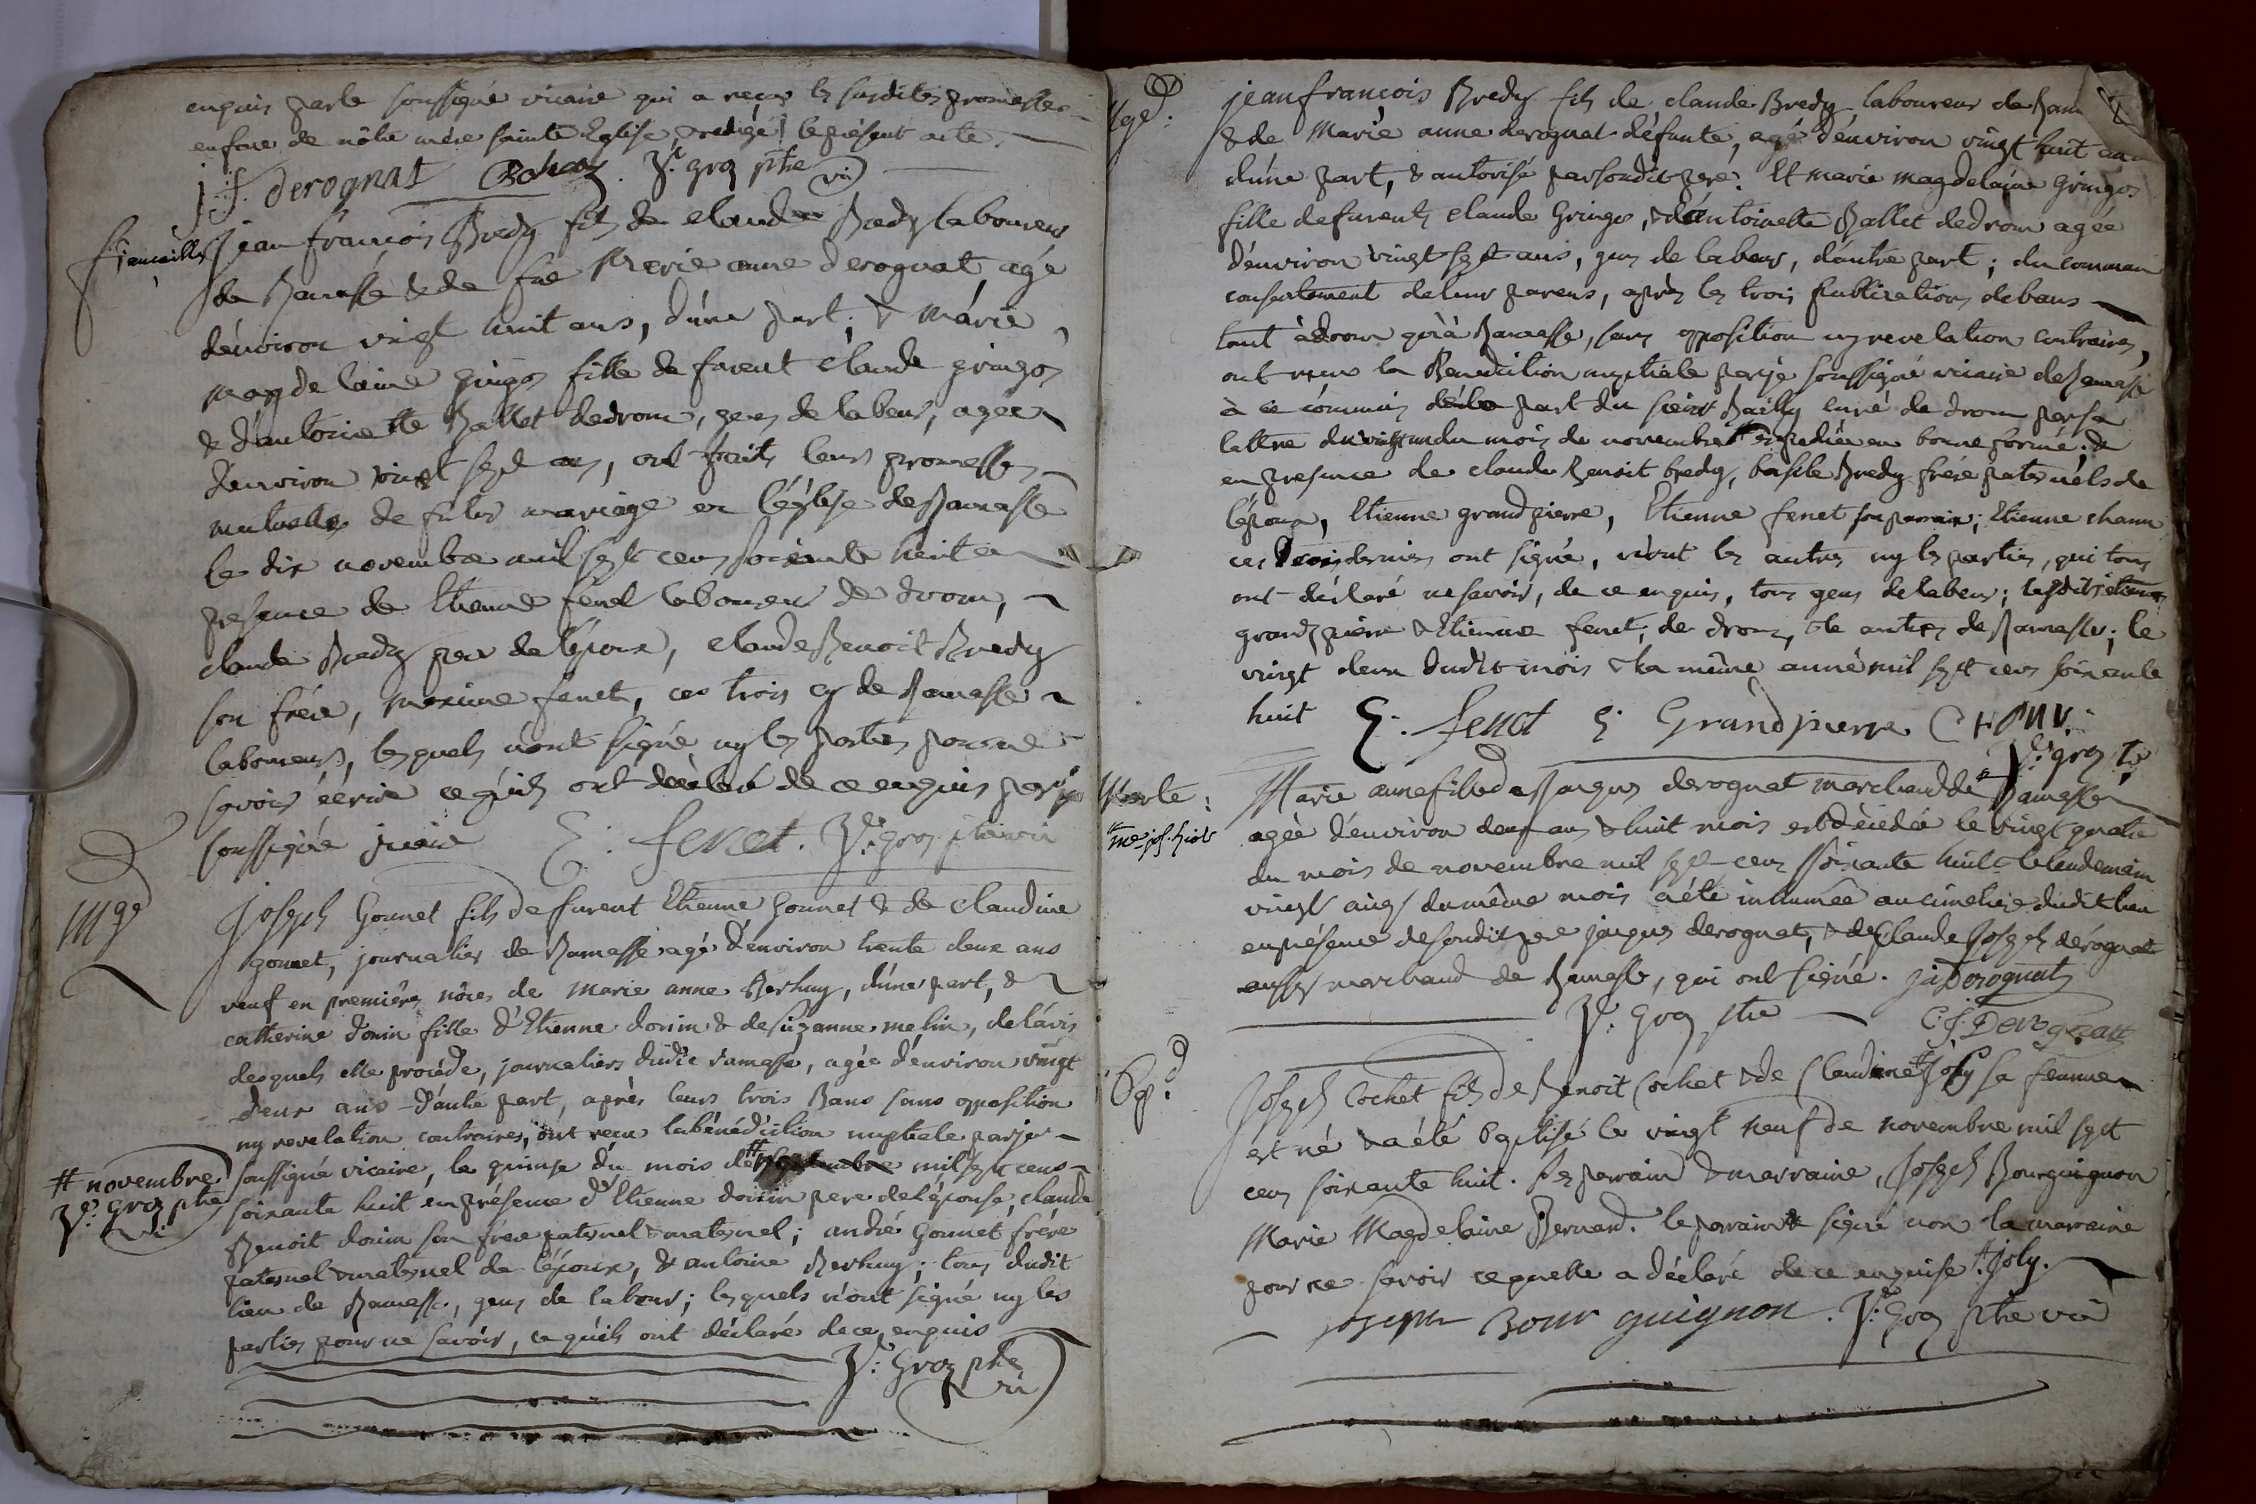 enquis par le soussigné vicaire qui a reçus les susdites promesses
en face de nôtre mère sainte Eglise, redigé le présent acte.
j.f. derognat Bohaz. P.e groz ptre vi
fiançailles
jean françois Bredy fils de claude Bredy laboureur
de Ramasse & de fue Marie anne derognat, agé
d'environ vingt huit ans, d'une part; & Marie
magdelaine gringoz fille de furent claude gringoz
& d'antoinette Ballet de drom, gens de labeur, agée
d'environ vingt sept ans, ont faits leurs promesses
mutuelles de futur mariage en l'église de Ramasse
le dix novembre mil sept cens soixante huit en
presence de Etienne fenet laboureur de drom,
claude Bredy pere de l'époux, claude Benoit Bredy
son frére, maxime fenet, ces trois cy de Ramasse
laboureurs, lesquels n'ont signé ny les parties pour ne
savoir écrire ce qu'ils ont déclaré de ce enquis par je
soussigné vicaire E. fenet. P.e groz ptre vic
mgd
Joseph Gonnet fils de furent Etienne gonnet & de claudine
gonnet, journalier de Ramasse agé d'environ trente deux ans
veuf en premiéres nôces de Marie anne Berthuy, d'une part, &
catherine donin fille d'Etienne donin & de suzanne melin, de l'avis
desquels elle procéde, journaliers dudit ramasse, agée d'environ vingt
deux ans d'autre part, après leurs trois Bans sans opposition
ny revelation contraires, ont reçu la bénédiction nuptiale par je
soussigné vicaire, le quinze du mois de # septembre mil sept cens
# novembre
P.e Groz ptre
vi
soixante huit en présence d'Etienne donin pere de l'épouse, claude
Benoit donin son frére paternel & maternel; andré Gonnet frére
paternel & maternel de l'époux, & antoine Berthuy; tous dudit
lieu de Ramasse, gens de labour; lesquels n'ont signé ny les
parties pour ne savoir, ce qu'ils ont déclaré de ce enquis
P.e Groz ptre
vi
Mgd:
jean françois Bredy fils de claude Bredy laboureur de Ram
& de Marie anne derognat défunte, agé d'environ vingt huit ans
d'une part, & autorisé par son dit pere. Et marie magdelaine Gringoz
fille de furent claude Gringoz, & d'antoinette Ballet de drom agée
d'environ vingt sept ans, gens de labeur, d'autre part; du commun
consentement de leurs parens, après les trois publications de bans
tant à drom qu'à Ramasse, sans opposition ny revelation contraires,
ont reçu la Benediction nuptiale par je soussigné vicaire de Ramasse
à ce commis de la part du sieur Bailly curé de drom par sa
lettre du vingt un du mois de novembre expediée en bonne forme: &
en presence de claude Benoit bredy, basile Bredy frére paternels de
l'époux, Etienne grandpierre, Etienne fenet son parrain; Etienne chanu
ces trois derniers ont signé, n'ont les autres ny les parties, qui tous
ont déclaré ne savoir, de ce enquis, tous gens de labeur; lesdits etienne
grandpierre & Etienne fenet, de drom, & les autres de Ramasse; le
vingt deux dudit mois & la même année mil sept cens soixante
huit E. fenet E. Grandpierre CHANV.
P.e groz ptre
Morte:
Marie anne fille de Jacques derognat marchand de Ramasse
agée d'environ deux ans & huit mois est décédée le vingt quatre
du mois de novembre mil sept cens soixante huit le lendemain
vingt cinq du même mois a été inhumée au cimetiere dudit lieu
en présence de son dit pere jacques derognat, & de Claude Joseph dérognat
aussy marchand de Ramasse, qui ont signé. ja Derognat
P.e Groz ptre C.J. Derognat
Bp.d
Joseph Cochet fils de Benoit Cochet & de Claudine # Joly sa femme
est né & a été Baptisé le vingt neuf de novembre mil sept
cens soixante huit. ses parrain & marraine, Joseph Bourguignon
Marie Magdelaine Bernard. le parrain a signé non la marraine
pour ne savoir ce qu'elle a déclaré de ce enquise # Joly.
joseph Bour guignon. P.e Groz ptre vic